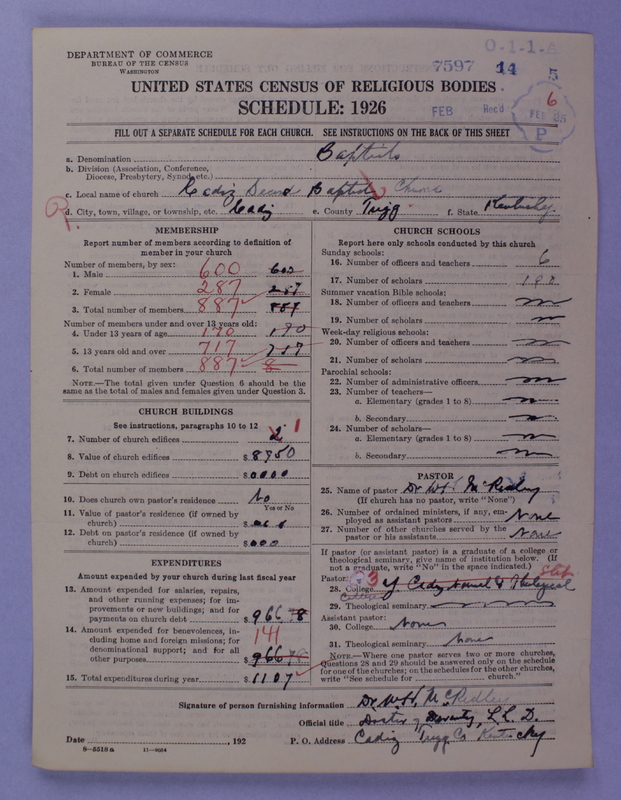 O-1-1-A
DEPARTMENT OF COMMERCE
BUREAU OF THE CENSUS
WASHINGTON
7597 14 5
UNITED STATES CENSUS OF RELIGIOUS BODIES
SCHEDULE: 1926
FEB Rec'd FEB 25 P 6
FILL OUT A SEPARATE SCHEDULE FOR EACH CHURCH. SEE INSTRUCTIONS ON THE BACK OF THIS SHEET
a. Denomination Baptist
b. Division (Association, Conference, Diocese, Presbytery, Synod, etc.)
c. Local name of church Cadiz Second Baptist Church
R.
d. City, town, village, or township, etc. Cadiz e. County Trigg f. State Kentucky
MEMBERSHIP
Report number of members according to definition of member in your church
Number of members, by sex:
1. Male 600 600
2. Female 287 287
3. Total number of members 887 887
Number of members under and over 13 years old:
4. Under 13 years of age 170 170
5. 13 years old and over 717 717
6. Total number of members 887
NOTE.—The total given under Question 6 should be the same as the total of males and females given under Question 3.
CHURCH BUILDINGS
See instructions, paragraphs 10 to 12
7. Number of church edifices 2 1
8. Value of church edifices $ 8950
9. Debt on church edifices $ 0000
10. Does church own pastor's residence No
Yes or No
11. Value of pastor's residence (if owned by church) $
12. Debt on pastor's residence (if owned by church) $ 000
EXPENDITURES
Amount expended by your church during last fiscal year
13. Amount expended for salaries, repairs, and other running expenses; for improvements or new buildings; and for payments on church debt $ 966 78
14. Amount expended for benevolences, including home and foreign missions; for denominational support; and for all other purposes $ 966 78 141
15. Total expenditures during year $ 1107
CHURCH SCHOOLS
Report here only schools conducted by this church
Sunday schools:
16. Number of officers and teachers 6
17. Number of scholars
Summer vacation Bible schools:
18. Number of officers and teachers
19. Number of scholars
Week-day religious schools:
20. Number of officers and teachers
21. Number of scholars
Parochial schools:
22. Number of administrative officers
23. Number of teachers—
a. Elementary (grades 1 to 8)
b. Secondary
24. Number of scholars—
a. Elementary (grades 1 to 8)
b. Secondary
PASTOR
25. Name of pastor Dr. W. H. McRidley
(If church has no pastor, write "None")
26. Number of ordained ministers, if any, employed as assistant pastors None
27. Number of other churches served by the pastor or his assistants None
If pastor (or assistant pastor) is a graduate of a college or theological seminary, give name of institution below. (If not a graduate, write "No" in the space indicated.)
Pastor: 3
28. College Cadiz Normal & Theological College
29. Theological seminary
Assistant pastor:
30. College None
31. Theological seminary None
NOTE.—Where one pastor serves two or more churches, Questions 28 and 29 should be answered only on the schedule for one of the churches; on the schedules for the other churches, write "See schedule for church."
Signature of person furnishing information Dr. W. H. McRidley
Official title Doctor of Divinity, L. L. D.
Date , 192 P. O. Address Cadiz Trigg Co Kentucky
8—5518 a 11—9664